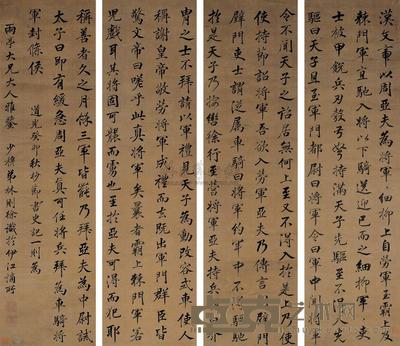 漢文帝以周亞夫為將軍細柳上自勞軍至霸上及
棘門軍直馳入將以下騎送迎已而之細柳軍
士被甲銳兵刃彀弓弩持滿天子先驅至不得入先
驅曰天子且至軍門都尉曰將軍令曰軍中聞將軍
令不聞天子之詔居無何上至又不得入於是上乃使
使持節詔將軍吾欲入勞軍亞夫乃傳言開壁門
壁門吏士謂從屬車騎曰將軍約軍中不驅馳
於是天子乃按轡徐行至營將軍亞夫持兵揖曰介
胄之士不拜請以軍禮見天子為動改容式車使人
稱謝皇帝敬勞將軍成禮而去既出軍門群臣皆
驚文帝曰嗟乎此真將軍矣曩者霸上棘門軍若
兒戲耳其將固可襲而虜也至於亞夫可得而犯耶
稱善者久之月餘三軍皆罷乃拜亞夫為中尉誡
太子曰即有緩急周亞夫真可任將兵拜為車騎將
軍封條侯 道光癸卯秋杪節書史記一則為
大兄大人雅鑒 少穆弟林則徐識於伊江謫所